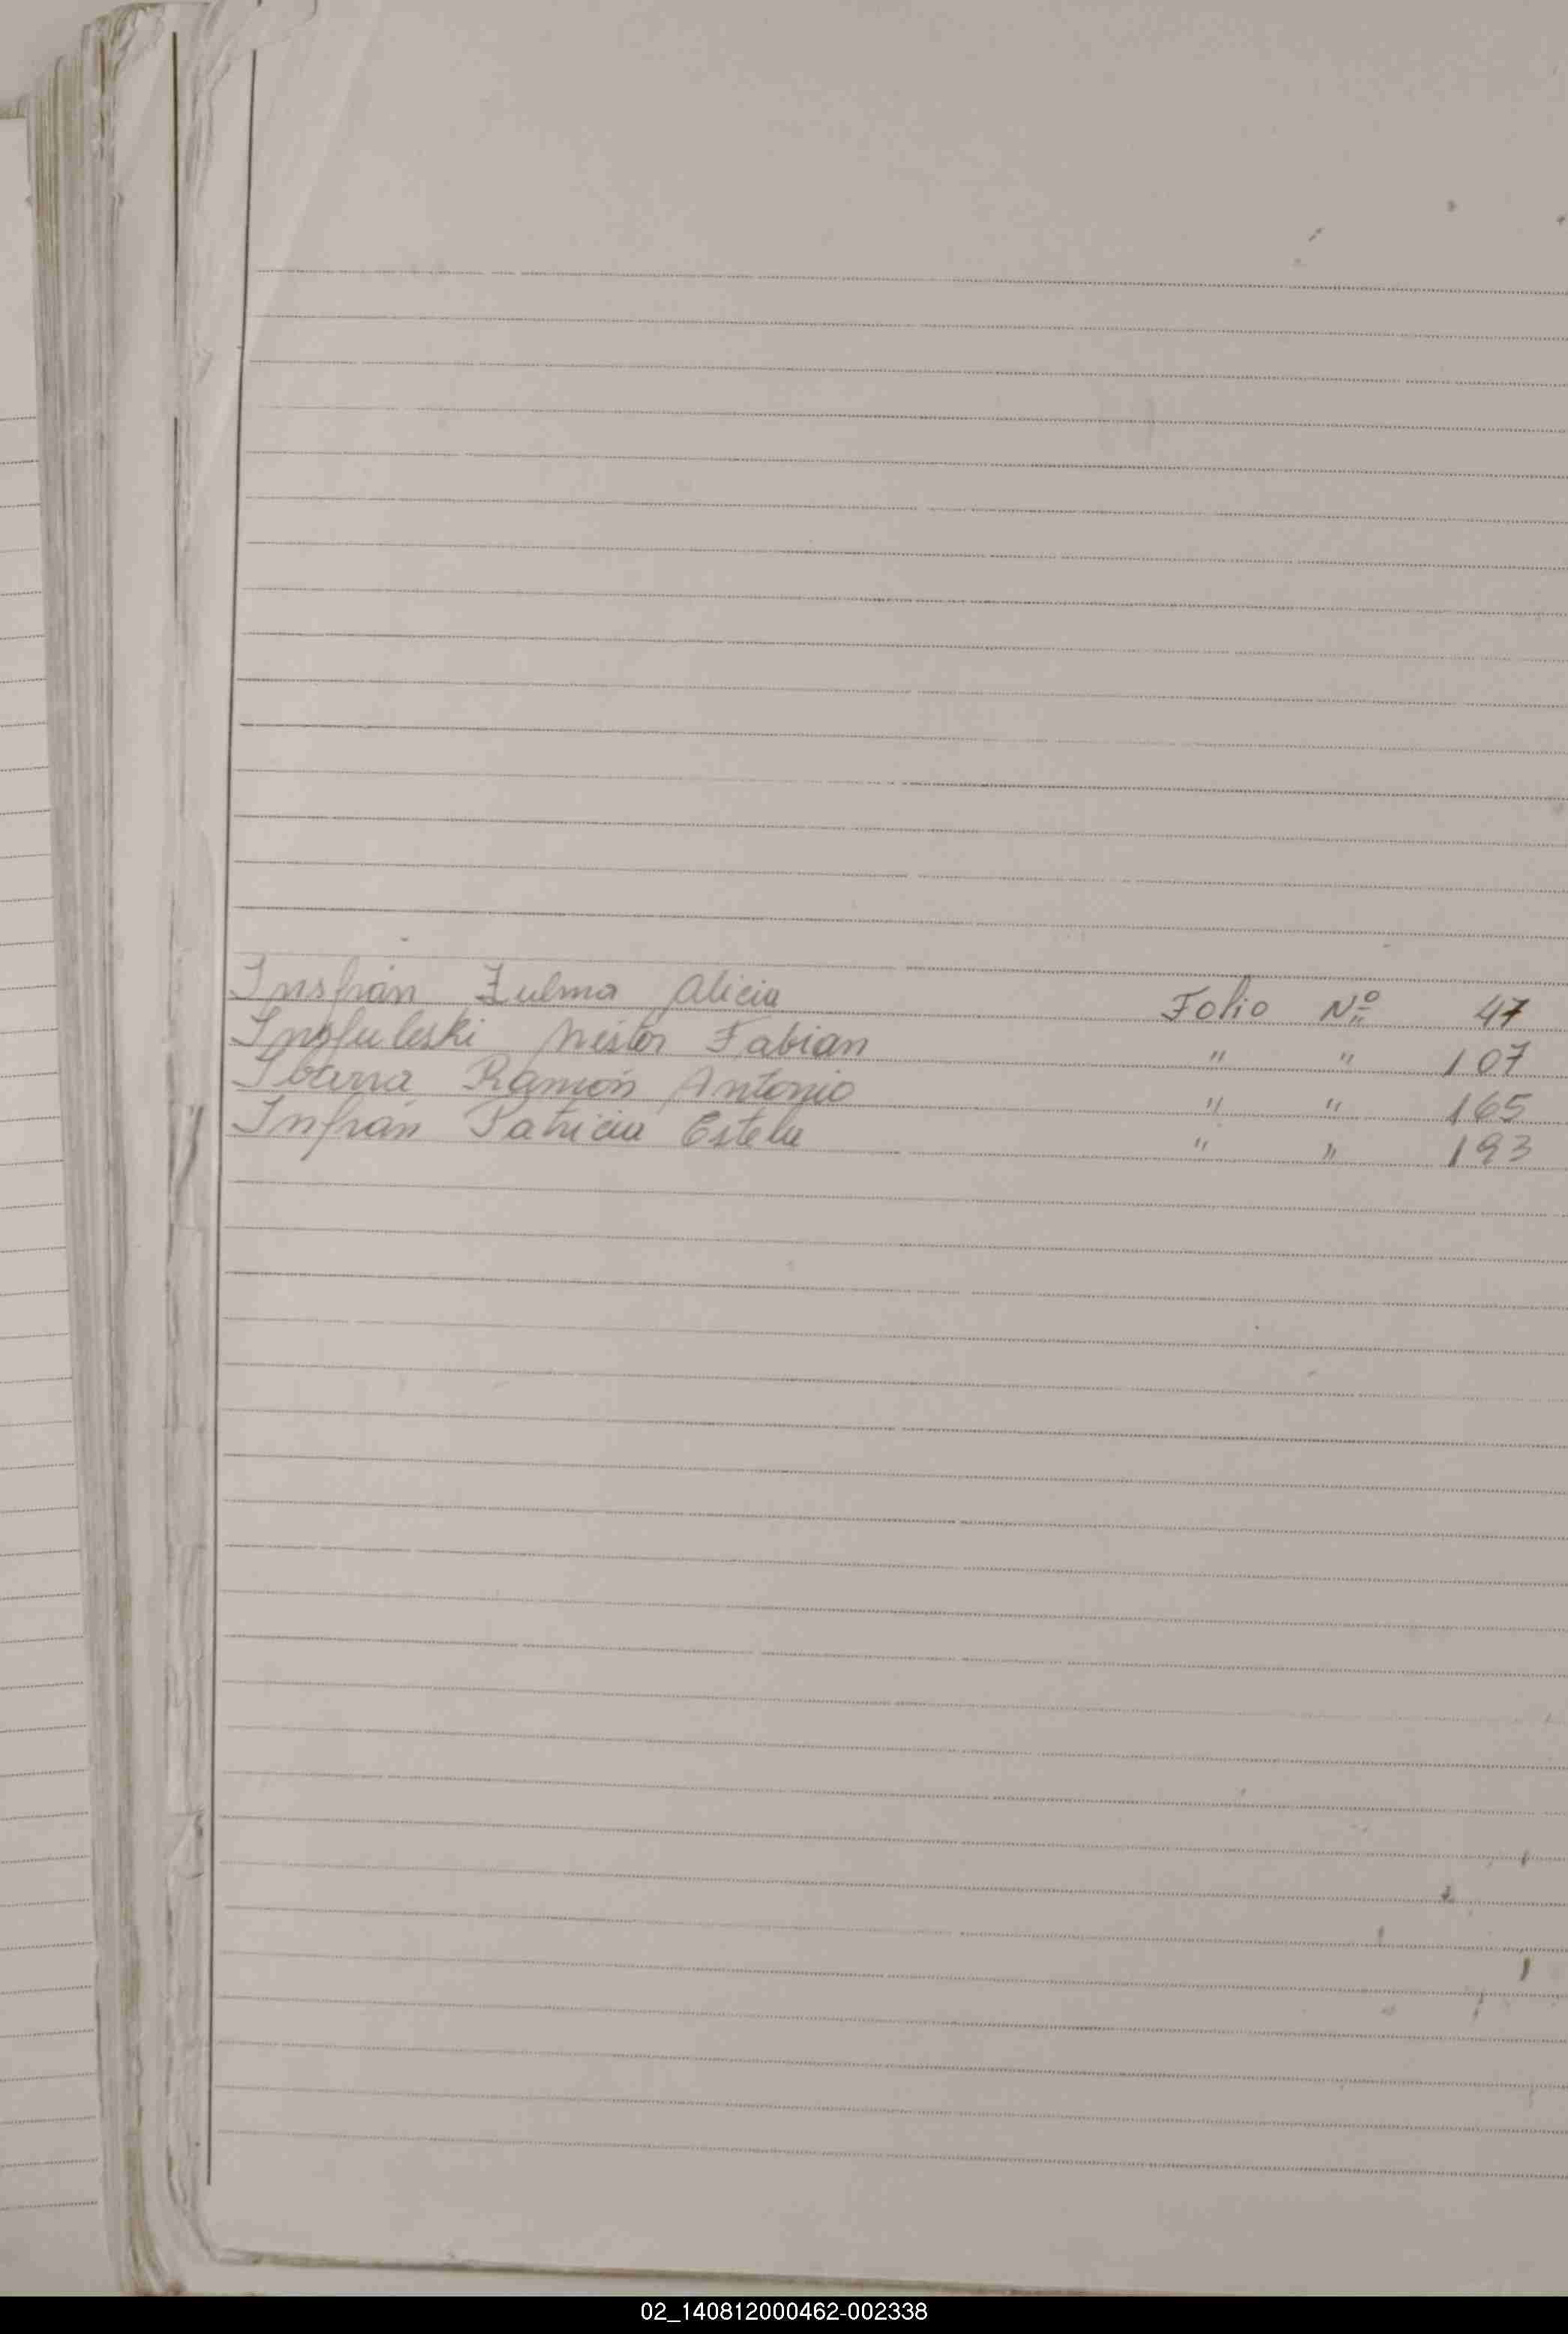 Insfrán Zulma Alicia Folio Nº 47
Néstor Fabian " " 107
Ibarra Ramón Antonio " " 165
Infrán Patricia Estela " " 193
02_140812000462-002338